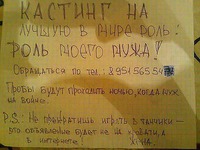 КАСТИНГ НА
ЛУЧШУЮ В МИРЕ РОЛЬ:
РОЛЬ МОЕГО МУЖА!
ОБРАЩАТЬСЯ ПО ТЕЛ.: 8951565 54
ПРОБЫ БУДУТ ПРОХОДИТЬ НОЧЬЮ, КОГДА МУЖ
НА ВОЙНЕ.
P.S.: НЕ ПРЕКРАТИШЬ ИГРАТЬ В ТАНЧИКИ -
ЭТО ОБЪЯВЛЕНИЕ БУДЕТ НЕ НА КРОВАТИ, А
В ИНТЕРНЕТЕ! ЖЕНА.